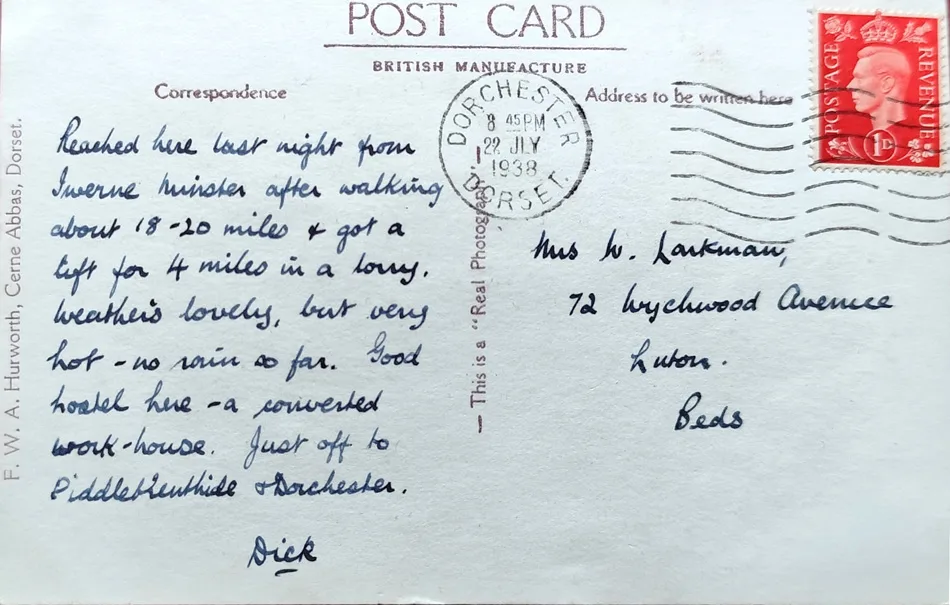 POST CARD
BRITISH MANUFACTURE
Correspondence
Address to be written here
F. W. A. Hurworth, Cerne Abbas, Dorset.
Reached here last night from
Iwerne Minster after walking
about 18-20 miles & got a
lift for 4 miles in a lorry.
Weather's lovely, but very
hot - no rain so far. Good
hostel here - a converted
work-house. Just off to
Piddletrenthide & Dorchester.
Dick
— This is a "Real Photograph." —
DORCHESTER
8 45 PM
22 JLY
1938
DORSET.
POSTAGE
REVENUE
1D
Mrs W. Larkman,
72 Wychwood Avenue
Luton.
Beds